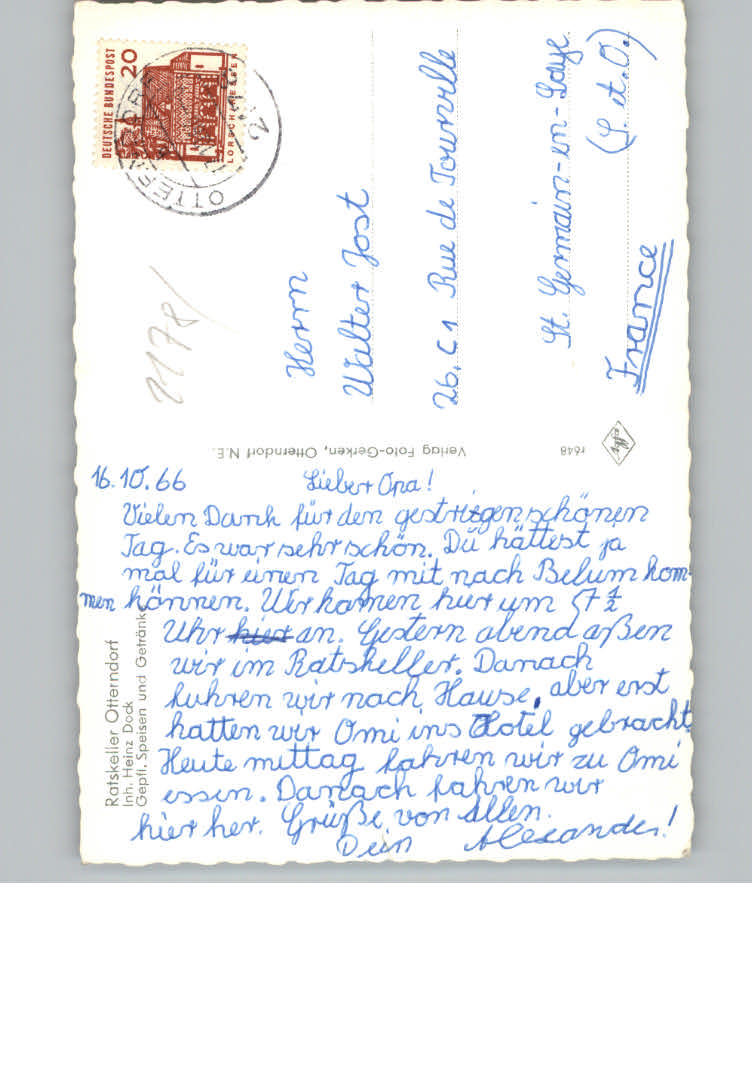 DEUTSCHE BUNDESPOST
20
LORSCH HESSEN
2178/
Herrn
Walter Jost
26, C1 Rue de Tourville
St. Germain-en-Laye
(S. et. O.)
France
Verlag Foto-Gerken, Otterndorf N.E.
r648
16.10.66 Lieber Opa!
Vielen Dank für den gestrigen schönen
Tag. Es war sehr schön. Du hättest ja
mal für einen Tag mit nach Belum kom-
men können. Wir kamen hier um 57 1/2
Uhr hier an. Gestern abend aßen
wir im Ratskeller. Danach
fuhren wir nach Hause, aber erst
hatten wir Omi ins Hotel gebracht.
Heute mittag fahren wir zu Omi
essen. Danach fahren wir
hier her. Grüße von Allen.
Dein Alexander!
Ratskeller Otterndorf
Inh. Heinz Dock
Gepfl. Speisen und Getränke